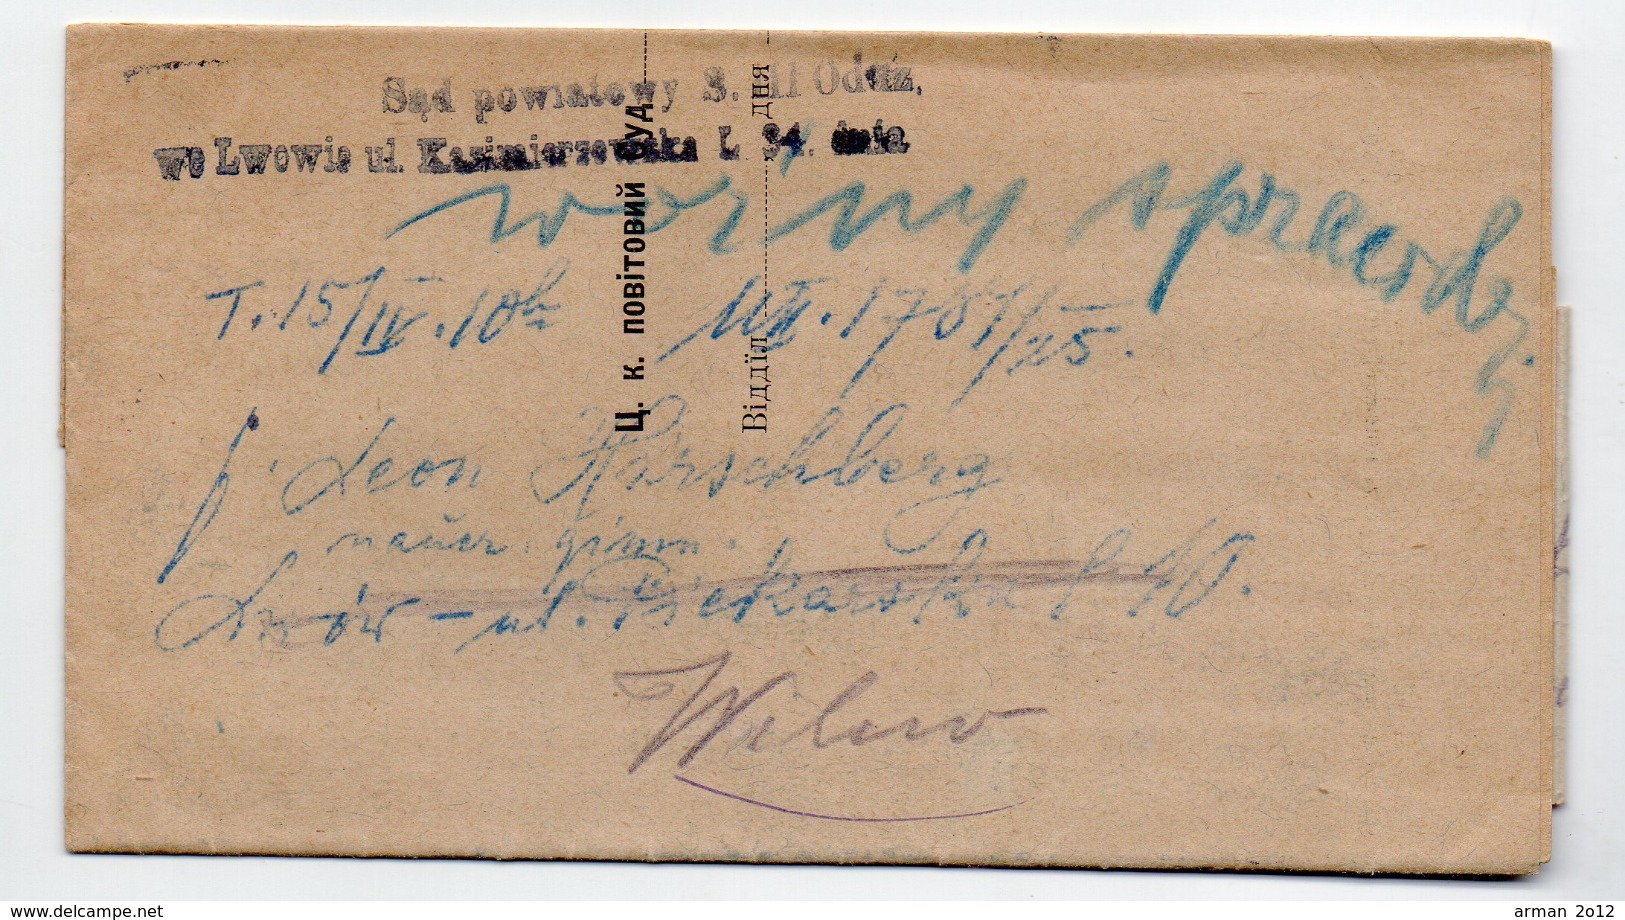 Sąd powiatowy S. II Oddz.
we Lwowie ul. Kazimierzowska L. 34. dnia
Ц. к. повітовий суд
Відділ дня
woźny sprawdzi
T. 15/IV. 10h 1787/25.
p. Leon Hirschberg
naucz. gimn.
Lwów - ul. Piekarska l. 40.
Wilno
www.delcampe.net
arman 2012